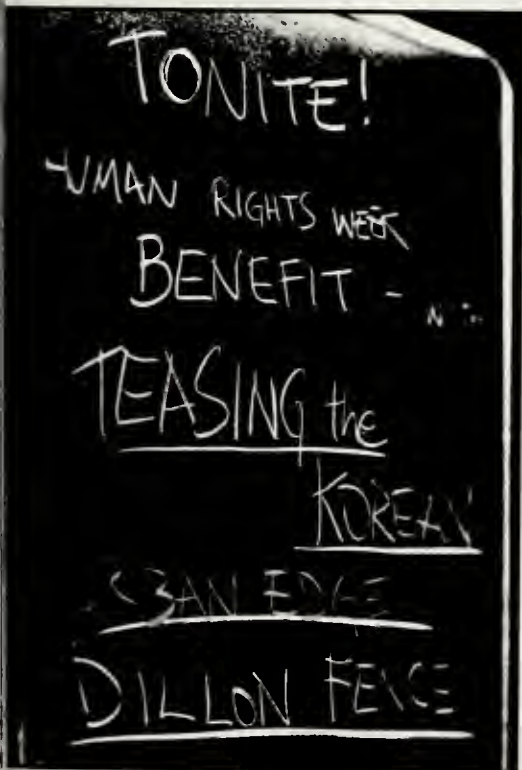 TONITE!
HUMAN RIGHTS WEEK
BENEFIT -
TEASING the
KOREAN
EDGE
DILLON FENCE